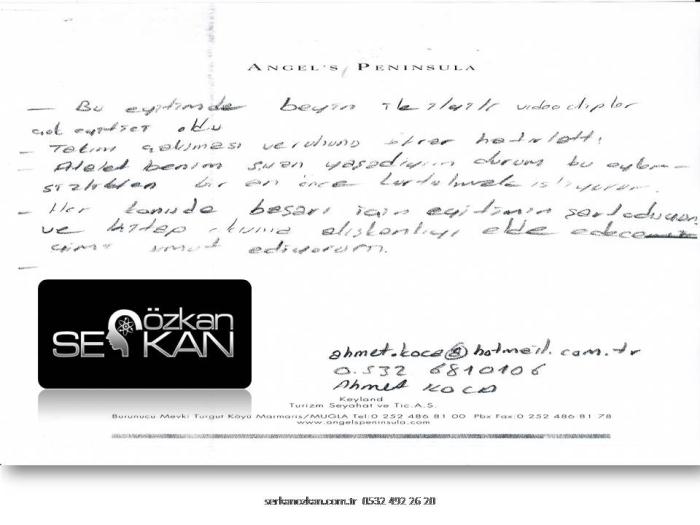 ANGEL'S PENINSULA
— Bu eğitimde beyin ile ilgili videoclipler
çok eğitici oldu
— Takım çalışması ve ruhunu tekrar hatırlattı.
— Atalet benim şuan yaşadığım durum bu
bir an önce kurtulmak istiyorum.
— Her konuda başarı için eğitimin şart olduğunu
ve kitap okuma alışkanlığı elde edece
ğimi umut ediyorum.
—
SERKAN özkan
ahmet.koca@hotmail.com.tr
0.532 6810106
Ahmet KOCA
Keyland
Turizm Seyahat ve Tic.A.S.
Burunucu Mevki Turgut Köyü Marmaris/MUĞLA Tel:0 252 486 81 00 Pbx Fax:0 252 486 81 78
www.angelspeninsula.com
serkanozkan.com.tr 0532 492 26 20